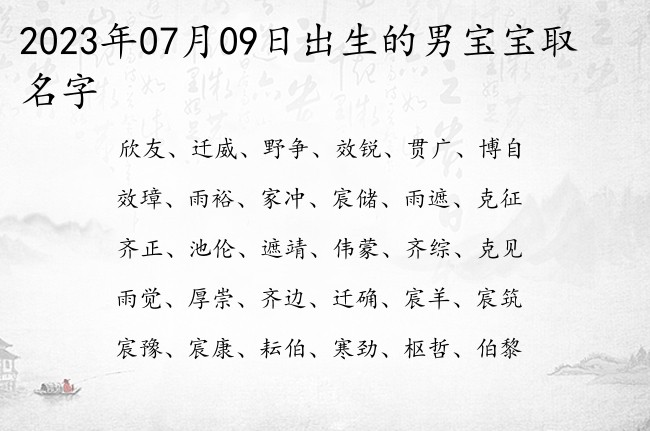 2023年07月09日出生的男宝宝取
名字
欣友、迁威、野争、效锐、贯广、博自
效璋、雨裕、家冲、宸储、雨遮、克征
齐正、池伦、遮靖、伟蒙、齐综、克见
雨觉、厚崇、齐边、迁确、宸羊、宸筑
宸豫、宸康、耘伯、寒劲、枢哲、伯黎